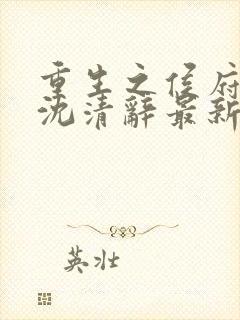 重生之侯府
沈清辭最新
英壯